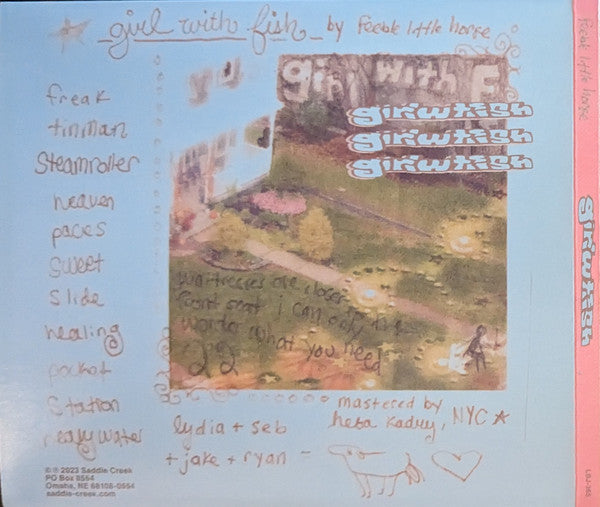 girl with fish by feeble little horse
freak
tinman
Steamroller
heaven
paces
Sweet
Slide
healing
pocket
Station
heavy water
girl with F
girlwfish
girlwfish
girlwfish
are closer
seat i can only
what you need
mastered by
heba kadry, NYC
lydia + seb
+ jake + ryan =
℗ © 2023 Saddle Creek
PO Box 8554
Omaha, NE 68108-0554
saddle-creek.com
feeble little horse
girlwfish